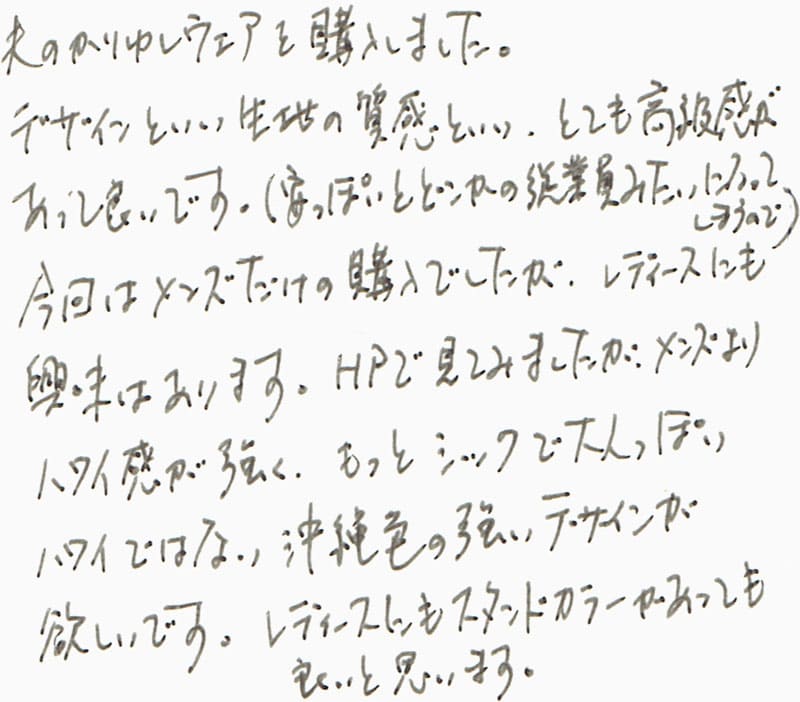 夫のかりゆしウェアを購入しました。
デザインといい生地の質感といい、とても高級感が
あって良いです。(安っぽいとどこかの従業員みたいになって
しまうので)
今回はメンズだけの購入でしたが、レディースにも
興味はあります。HPで見てみましたが、メンズより
ハワイ感が強く、もっとシックで大人っぽい
ハワイではない沖縄色の強いデザインが
欲しいです。レディースにもスタンドカラーがあっても
良いと思います。